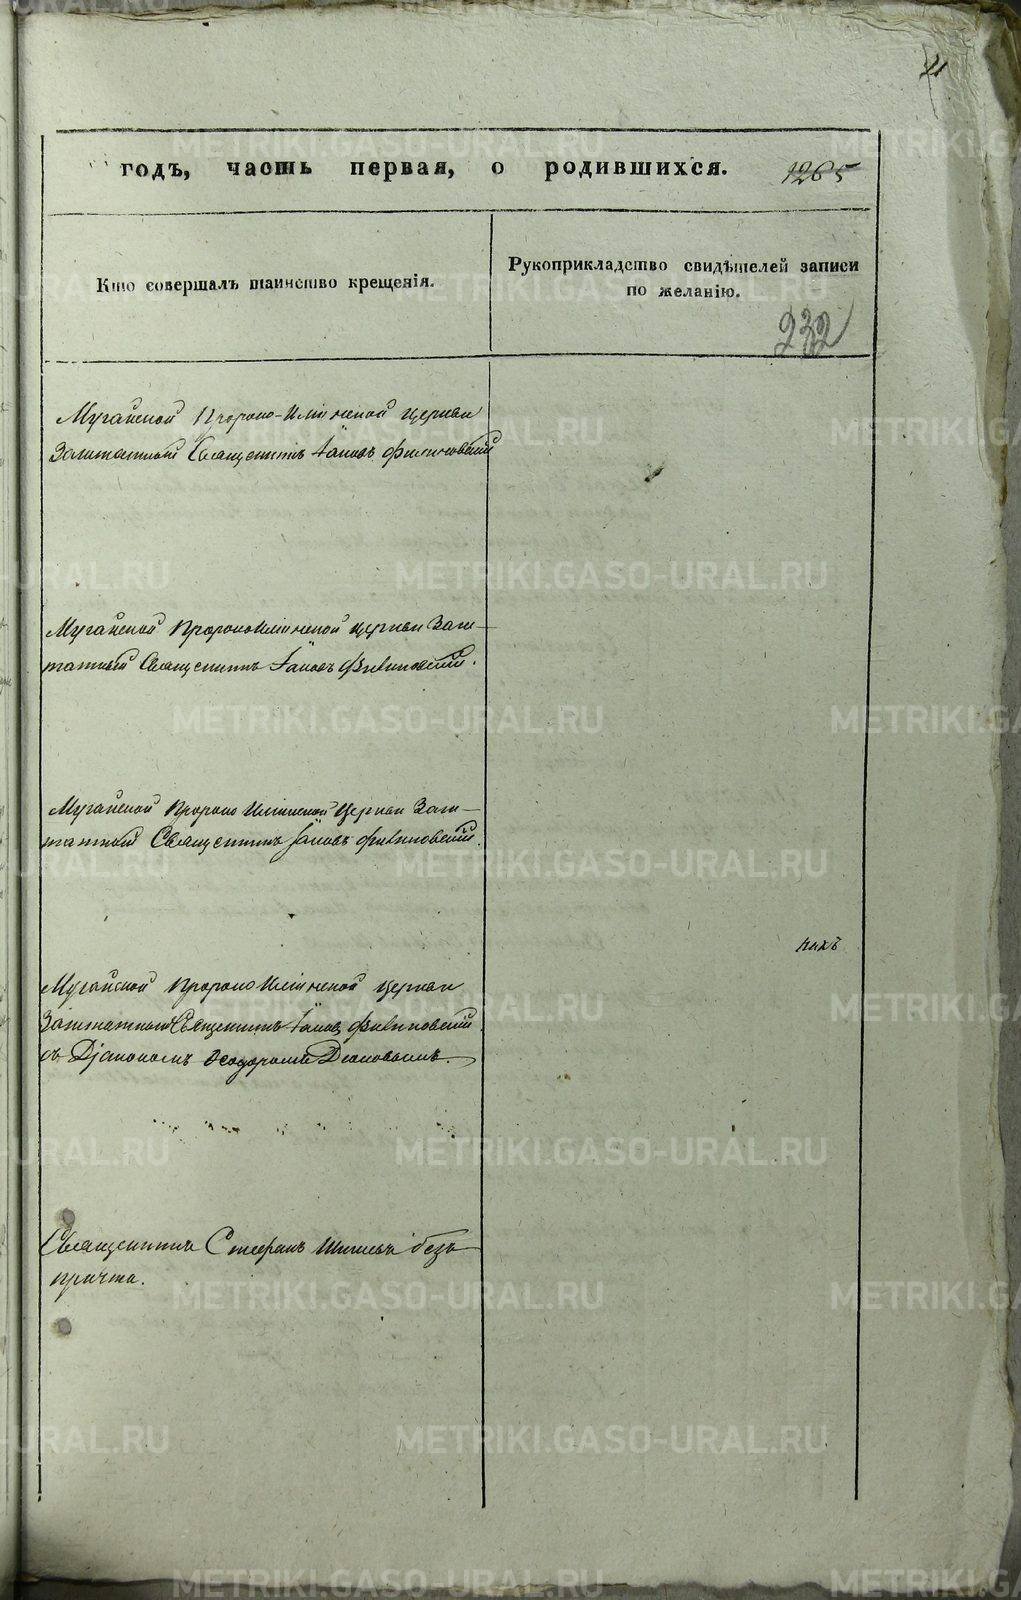 годъ, часть первая, о родившихся. 1265
Кто совершалъ таинство крещенія.
Рукоприкладство свидѣтелей записи
по желанію.
232
Мугайской Пророко-Ильинской церкви
Заштатный Священникъ Іаковъ Филиновскій
Мугайской Пророкоильинской церкви Заш-
татный Священникъ Іаковъ Филиновскій.
Мугайской Пророко Ильинской церкви Заш-
татный Священникъ Іаковъ Филиновскій.
Мугайской Пророко Ильинской церкви
Заштатный Священникъ Іаковъ Филиновскій
съ Діакономъ Ѳеодоромъ
Священникъ Стефанъ безъ
причта.
METRIKI.GASO-URAL.RU